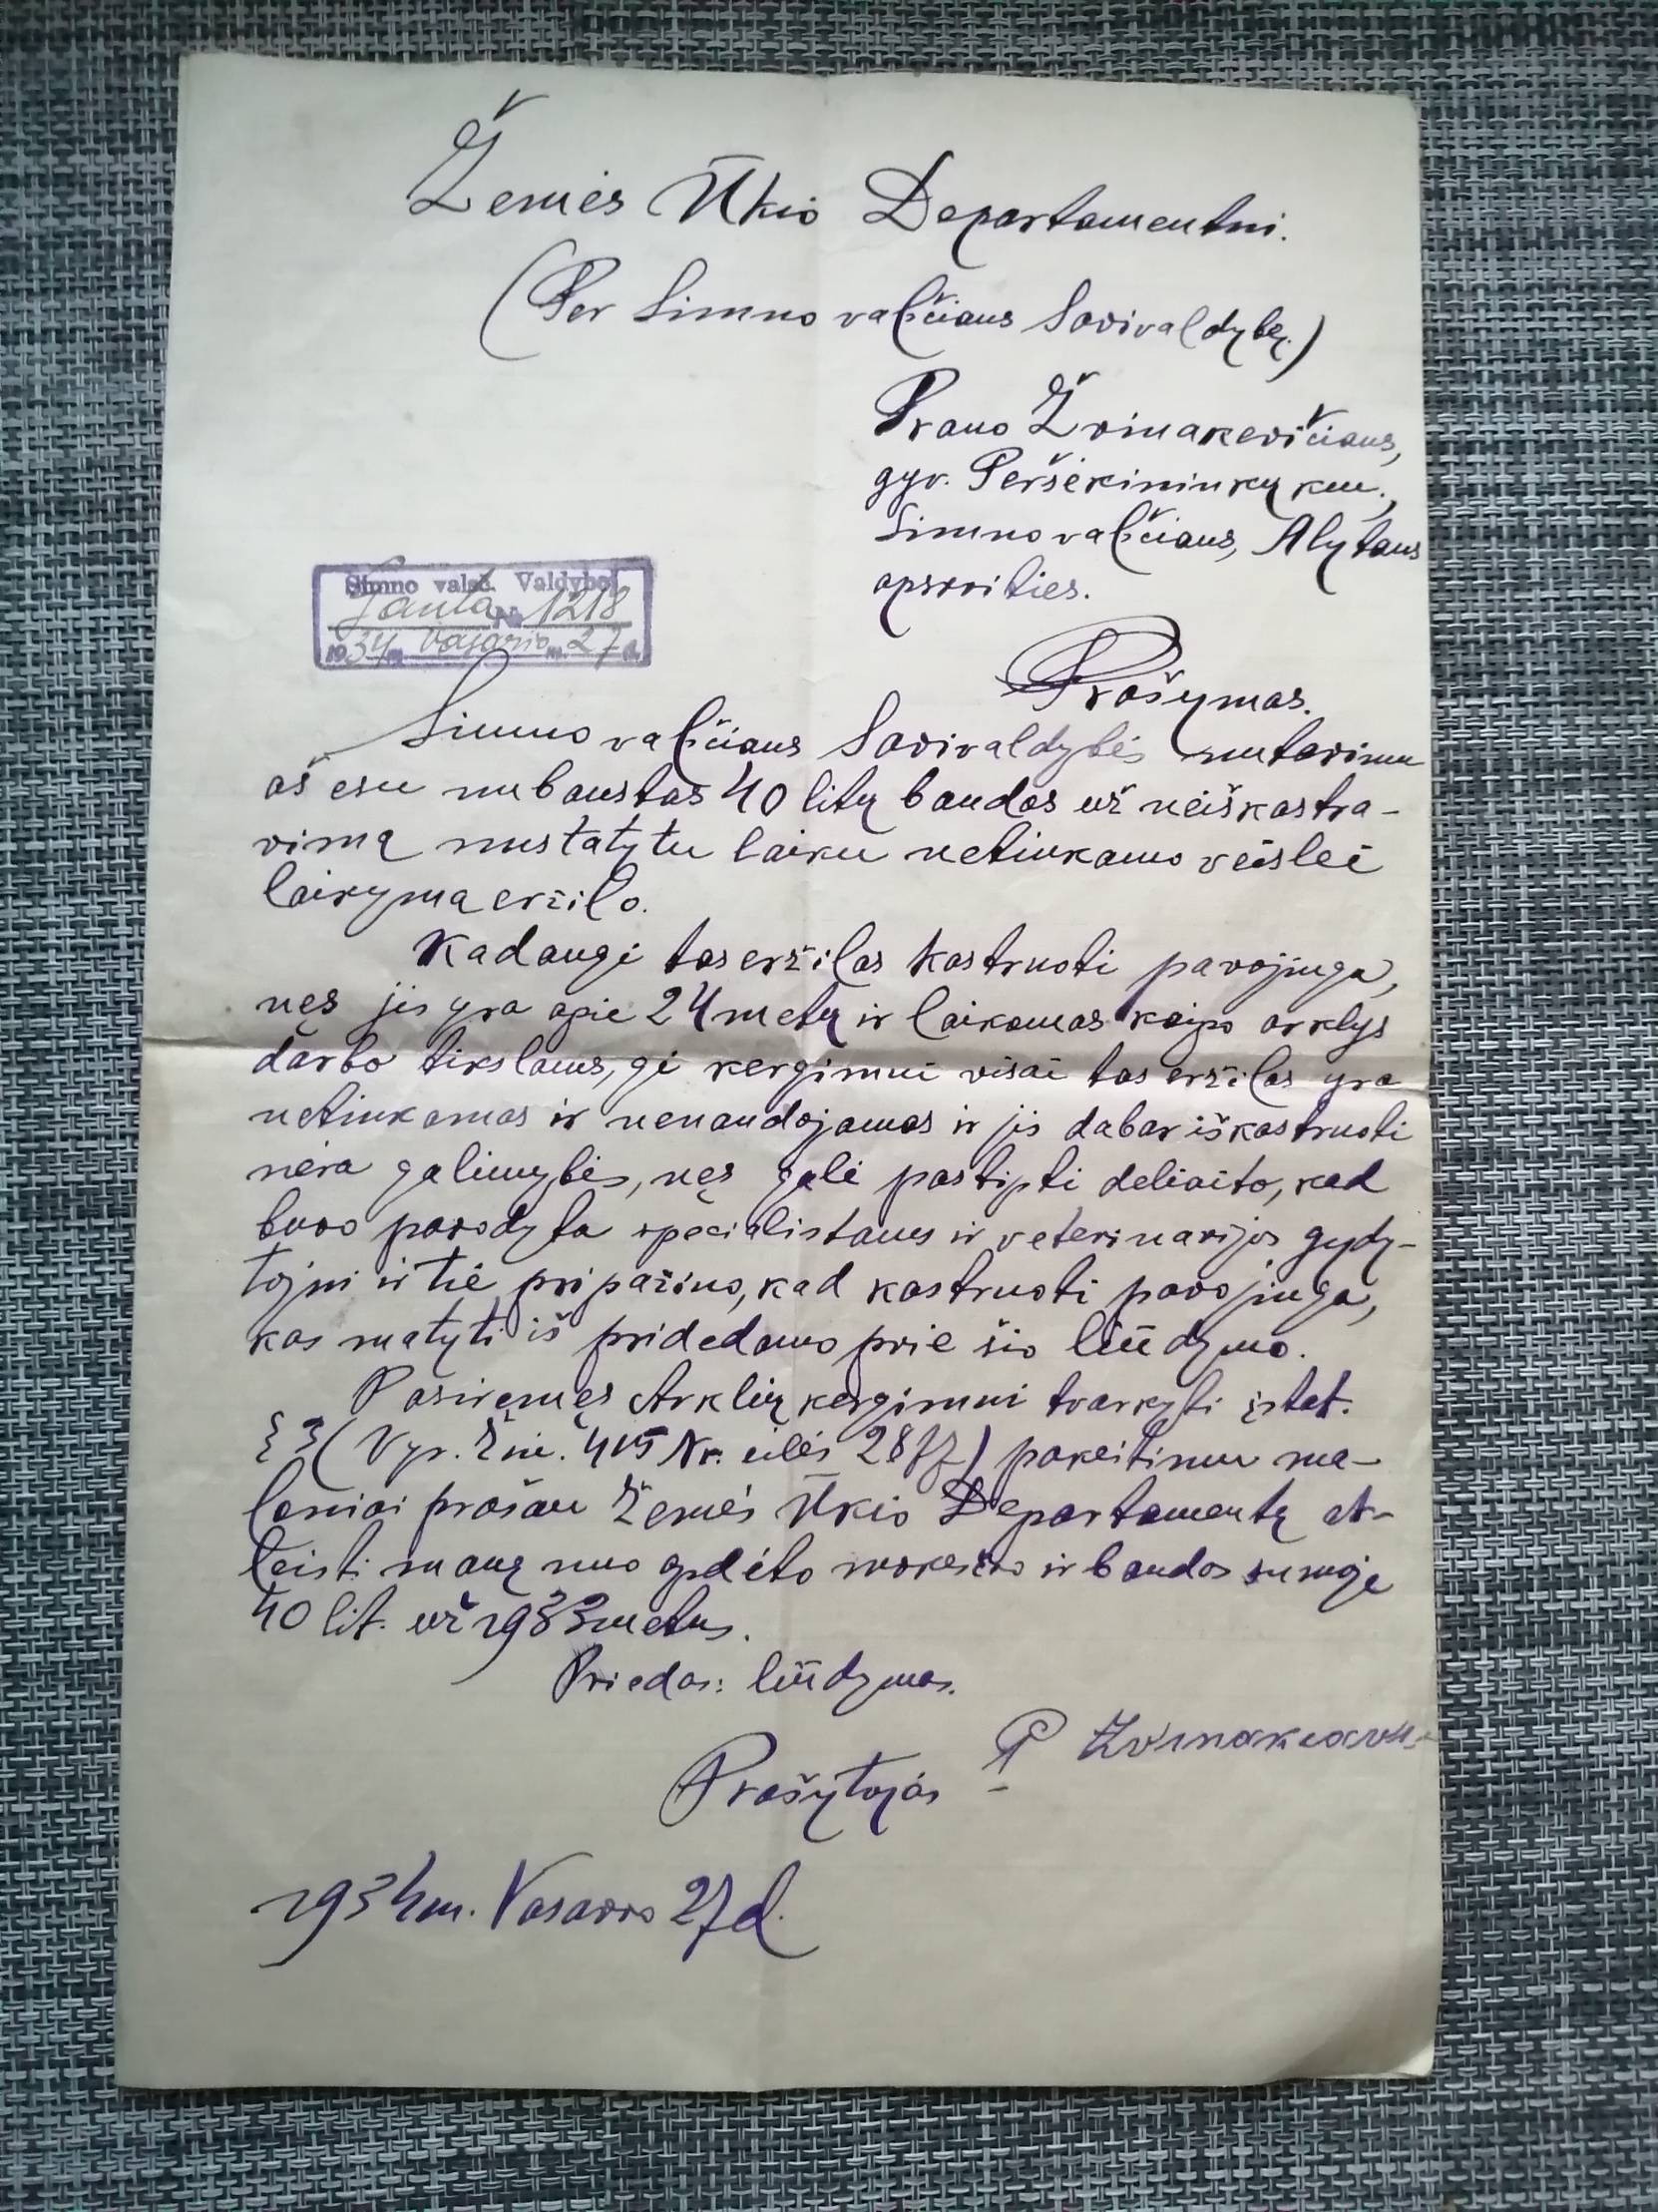 Žemės Ūkio Departamentui.
(Per Simno valsčiaus Savivaldybę.)
Prano Žvinakevičiaus,
gyv. Peršėkininkų km.,
Simno valsčiaus, Alytaus
apskrities.
Simno valsč. Valdyboj
Gauta Nr. 1218
1934 m. Vasario m. 27 d.
Prašymas.
Simno valsčiaus Savivaldybės nutarimu
aš esu nubaustas 40 litų baudos už neiškastra-
vimą nustatytu laiku netinkamo veislei
laikymą eržilo.
Kadangi tas eržilas kastruoti pavojinga,
nes jis yra apie 24 metų ir laikomas kaipo arklys
darbo tikslams, gi kergimui visai tas eržilas yra
netinkamas ir nenaudojamas ir jis dabar iškastruoti
nėra galimybės, nes gali pastipti deliai to, kad
buvo parodyta specialistams ir veterinarijos gydy-
tojui ir tie pripažino, kad kastruoti pavojinga,
kas matyti iš pridedamo prie šio liūdymo.
Pasirėmęs Arklių kergimui tvarkyti įstat.
§ 3 (Vyr. Žin. 415 Nr. eilės 2877) pakeitimu ma-
loniai prašau Žemės Ūkio Departamentą at-
leisti maną nuo įdėto mokesčio ir baudos sumoje
40 lit. už 1933 metus.
Priedas: liūdymas.
Prašytojas P
1934 m. Vasario 27 d.